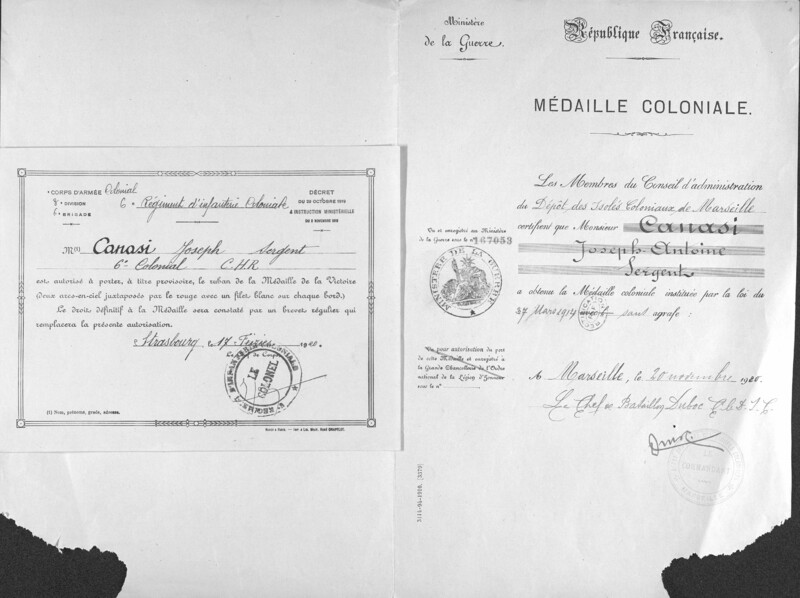 * CORPS D'ARMÉE Colonial
8e DIVISION
6e BRIGADE
6e Régiment d'infanterie Coloniale
DÉCRET
& INSTRUCTION MINISTÉRIELLE
M(1) Canasi Joseph Sergent
6e Colonial C.H.R
est autorisé à porter, à titre provisoire, le ruban de la Médaille de la Victoire
(deux arcs-en-ciel juxtaposés par le rouge avec un filet blanc sur chaque bord).
Le droit définitif à la Médaille sera constaté par un brevet régulier qui
remplacera la présente autorisation.
à Strasbourg, le 17 Février 1920.
LE COLONEL
(1) Nom, prénoms, grade, adresse.
Ministère
de la Guerre.
République Française.
MÉDAILLE COLONIALE.
Les Membres du Conseil d'administration
du Dépôt des Isolés Coloniaux de Marseille
certifient que Monsieur Canasi
Joseph-Antoine
Sergent
a obtenu la Médaille coloniale instituée par la loi du
27 Mars 1914 sans agrafe :
Vu et enregistré au Ministère
de la Guerre sous le n° 167053
MINISTÈRE DE LA GUERRE
Vu pour autorisation du port
de cette Médaille et enregistré à
la Grande Chancellerie de l'Ordre
national de la Légion d'Honneur
sous le n°
A Marseille, le 20 novembre 1920.
Le Chef de Bataillon Duboc